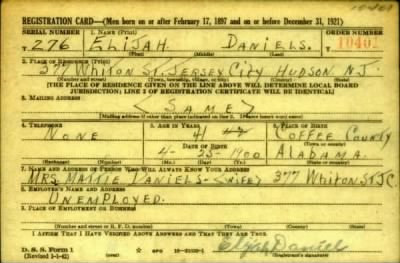 REGISTRATION CARD—(Men born on or after February 17, 1897 and on or before December 31, 1921)
SERIAL NUMBER 1. NAME (Print) ORDER NUMBER
T 276 ELIJAH DANIELS. 10402
(First) (Middle) (Last)
2. PLACE OF RESIDENCE (Print)
377 Whiton St. Jersey City Hudson N.J
(Number and street) (Town, township, village, or city) (County) (State)
[THE PLACE OF RESIDENCE GIVEN ON THE LINE ABOVE WILL DETERMINE LOCAL BOARD
JURISDICTION; LINE 2 OF REGISTRATION CERTIFICATE WILL BE IDENTICAL]
3. MAILING ADDRESS
<SAME>
[Mailing address if other than place indicated on line 2. If same insert word same]
4. TELEPHONE 5. AGE IN YEARS 6. PLACE OF BIRTH
NONE 41 COFFEE COUNTY
DATE OF BIRTH (Town or county)
4- 25- 1900 ALABAMA
(Exchange) (Number) (Mo.) (Day) (Yr.) (State or country)
7. NAME AND ADDRESS OF PERSON WHO WILL ALWAYS KNOW YOUR ADDRESS
MRS MATTIE DANIELS-(WIFE) 377 Whiton ST JC
8. EMPLOYER'S NAME AND ADDRESS
UNEMPLOYED.
9. PLACE OF EMPLOYMENT OR BUSINESS
(Number and street or R. F. D. number) (Town) (County) (State)
I AFFIRM THAT I HAVE VERIFIED ABOVE ANSWERS AND THAT THEY ARE TRUE.
D. S. S. Form 1 Elijah Daniel
(Revised 1-1-42) (Registrant's signature)